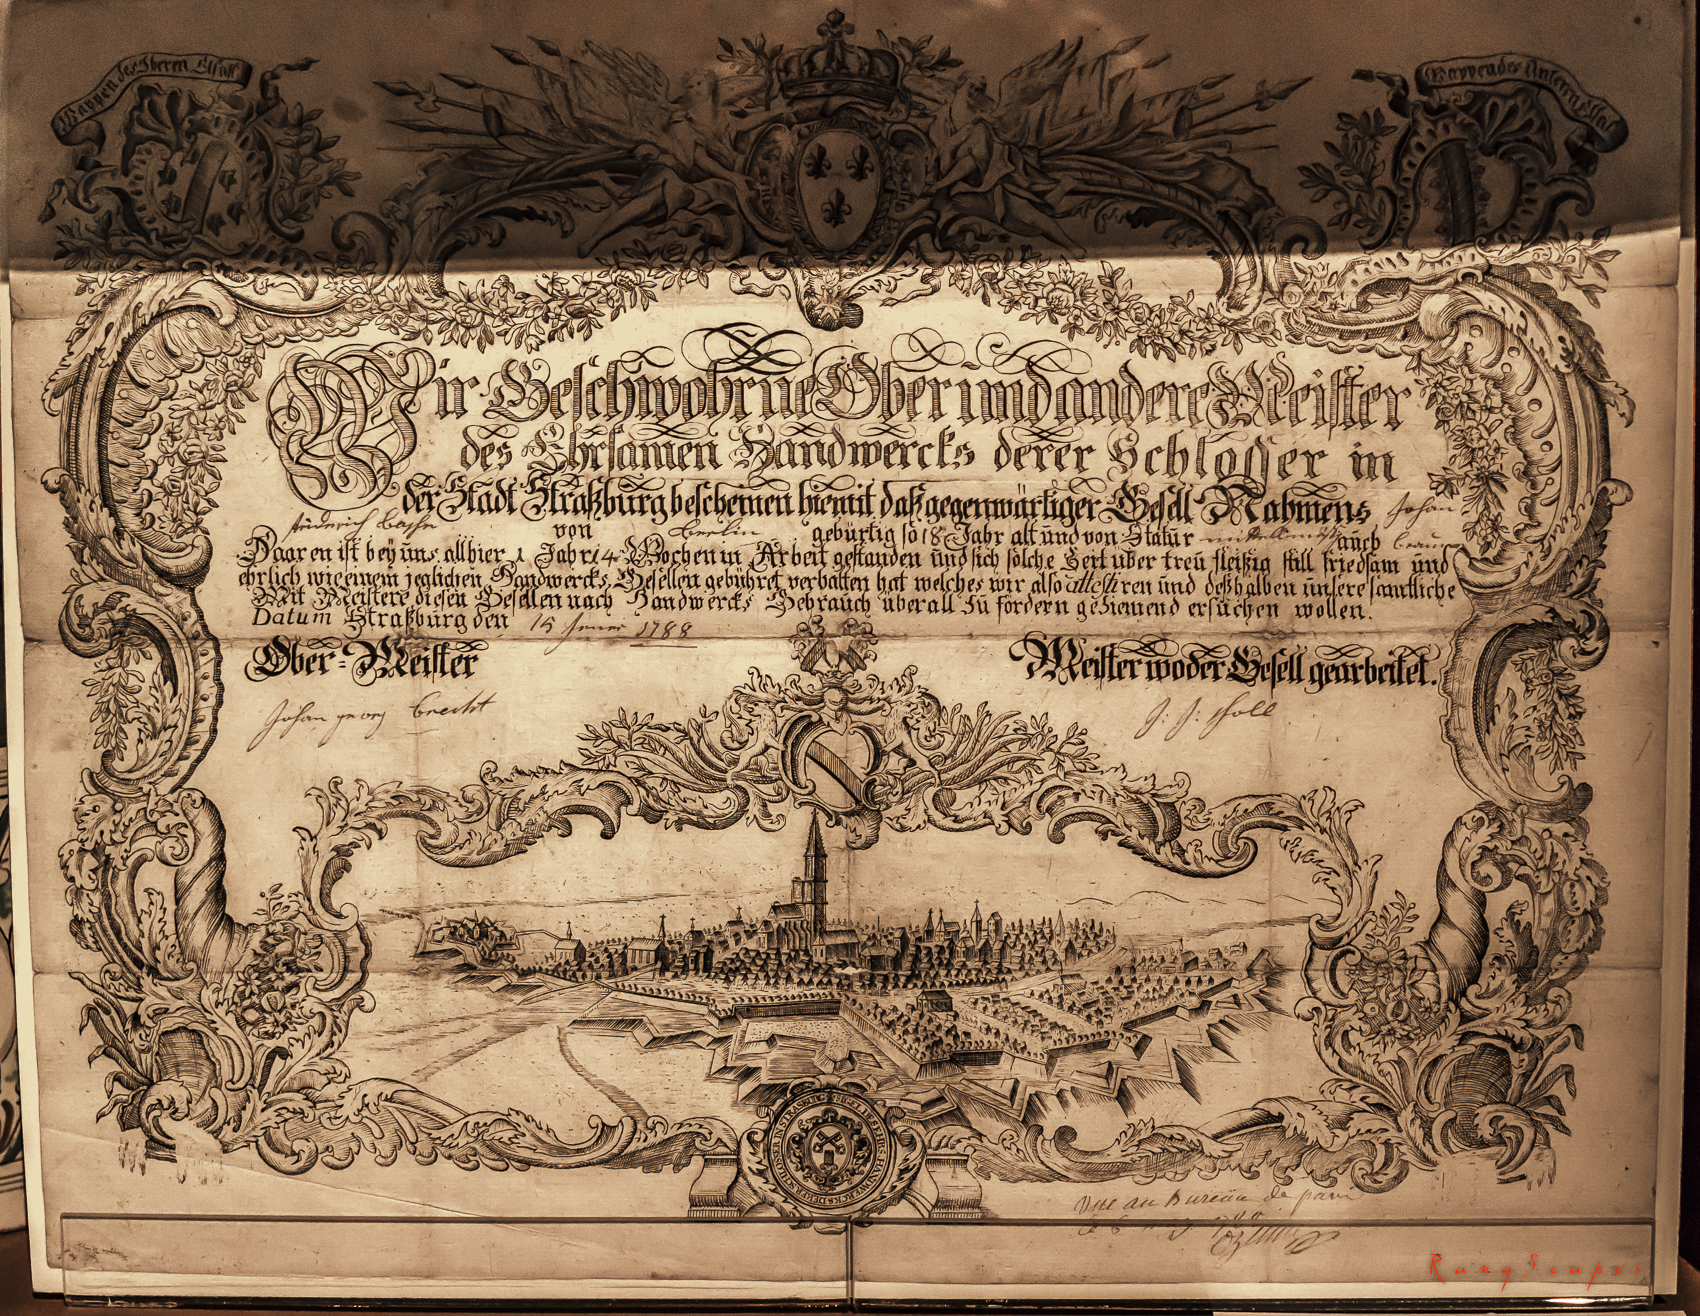 Wappen des Obern Elsaß
Wappen des Untern Elsas
Wir Geschwohrne Ober und andere Meister
des Ehrsamen Handwercks derer Schloßer in
der Stadt Straßburg bescheinen hiemit, daß gegenwärtiger Gesell Nahmens Johan
friderich von Berlin gebürtig so 18 Jahr alt und von Statur mittelmäßig auch braun
Haaren ist bey uns allhier 1 Jahr 14 Wochen in Arbeit gestanden und sich solche Zeit über treu fleißig still friedsam und
ehrlich wie einem jeglichen Handwercks Gesellen gebühret verhalten hat welches wir also attestiren und deßhalben unsere samtliche
Mit Meistere diesen Gesellen nach Handwercks Gebrauch überall zu fördern geziemend ersuchen wollen.
Datum Straßburg den 15 Jener 1788
Ober=Meister
Meister wo der Gesell gearbeitet.
Johan georg brecht
J: J: Noll
SIGEL DES EHRS HANDWERCKS DERER SCHLOSSER IN STRASBURG
Vue au Bureau de
le 6
RonySeaper